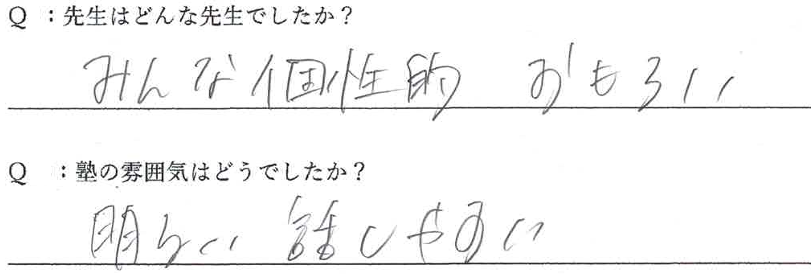 Q ：先生はどんな先生でしたか？
みんな個性的 おもろい
Q ：塾の雰囲気はどうでしたか？
明るい 話しやすい